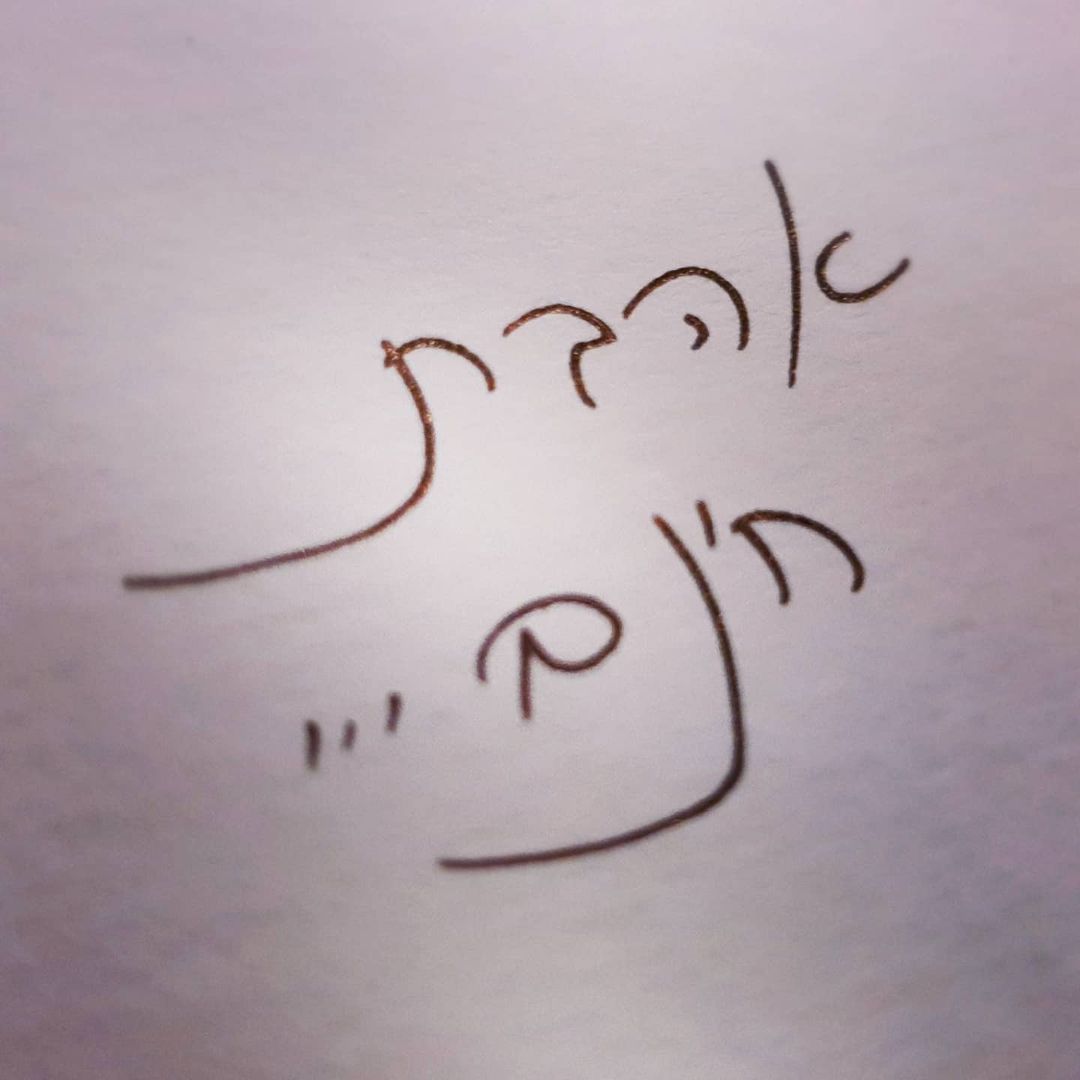 אהבת
חינם ...